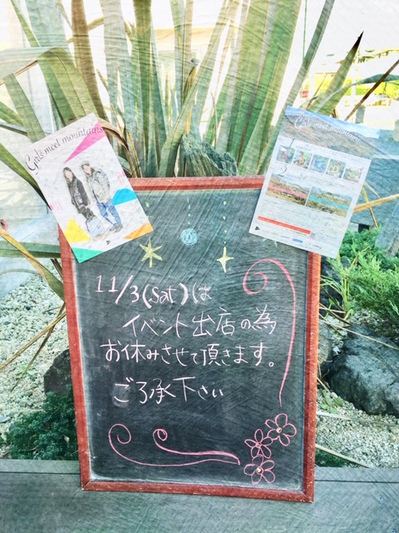 Girls meet mountain
11/3(Sat)は
イベント出店の為
お休みさせて頂きます。
ご了承下さい